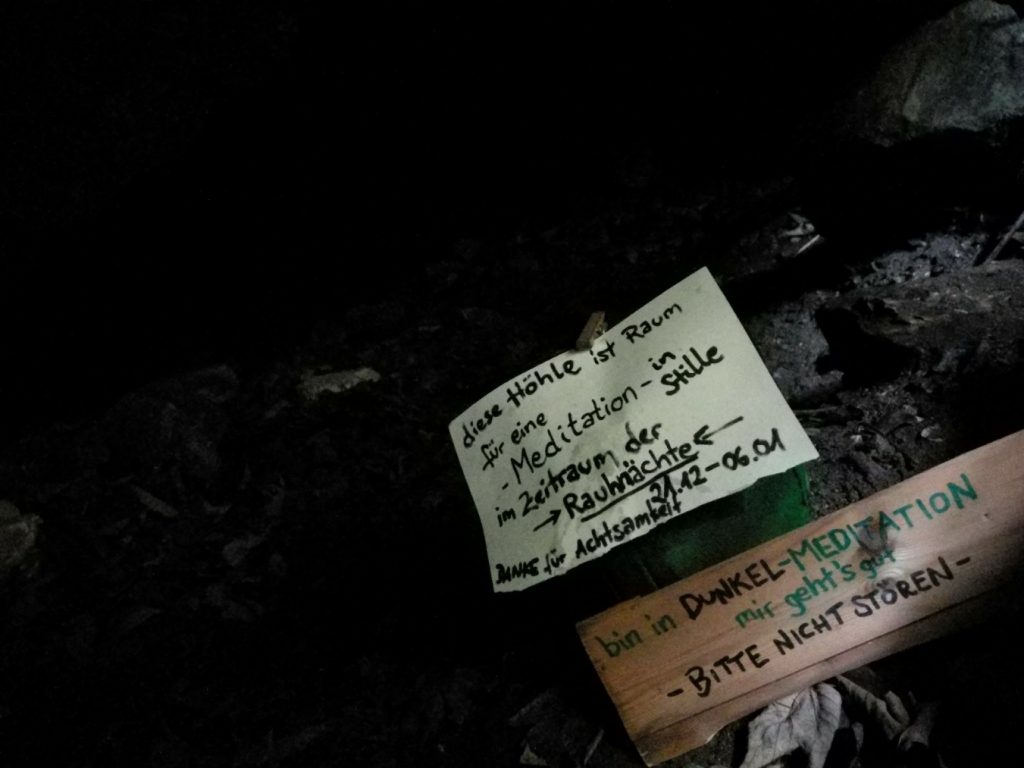 diese Höhle ist Raum
für eine
- Meditation - in Stille
im Zeitraum der
→ Rauhnächte ←
21.12 - 06.01
DANKE für Achtsamkeit
bin in DUNKEL-MEDITATION
mir geht's gut
- BITTE NICHT STÖREN -